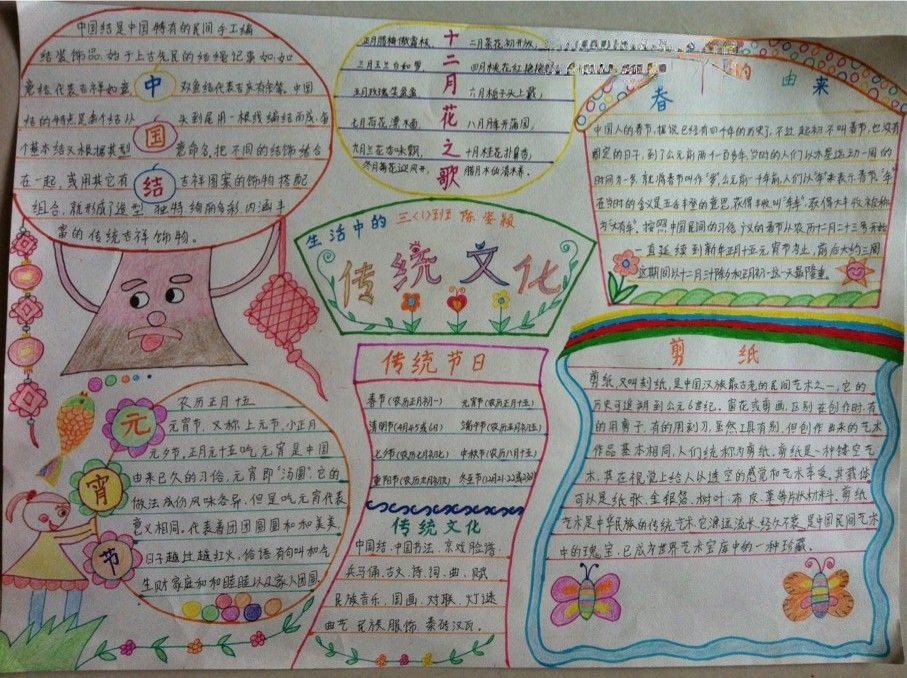 中国结是中国特有的民间手工编
结装饰品,始于上古先民的结绳记事如,如
意结代表吉祥如意, 双鱼结代表吉庆有余等。中国
结的特点是每个结从 头到尾用一根线编结而成,每
个基本结又根据其型 意命名,把不同的结饰结合
在一起,或用其它有 吉祥图案的饰物搭配
组合,就形成了造型 独特 绚丽多彩 内涵丰
富的传统吉祥饰物。
中
国
结
十二月花之歌
正月腊梅傲霜枝, 二月茶花初开放
三月玉兰白如雪 四月桃花红
六月栀子头上戴,
七月荷花 八月
九月兰花 十月桂花
腊月水仙
春 的 由 来
中国人的春节,据说已经有四千年的历史了,不过起初不叫春节,也没有
固定的日子,到了公元前两千一百多年,当时的人们以木星运动一周的
在当时的含义是五谷丰登的意思,
按照中国民间的习俗 农历十二月二十三号开始
一直延续到新年正月十五元宵节为止,前后大约三周
这期间以十二月三十除夕和正月初一这一天最隆重。
生活中的 三(1)班 陈姿颖
传统文化
传统节日
春节(农历正月初一) 元宵节(农历正月十五)
清明节(4月4,5或6日) 端午节(农历五月初五)
七夕节(农历七月初七) 中秋节(农历八月十五)
重阳节(农历九月初九)
传统文化
中国结.中国书法、京戏脸谱.
兵马俑.古文.诗.词.曲、赋
民族音乐、国画、对联、灯谜
曲艺 民族服饰、秦砖汉瓦。
剪 纸
剪纸,又叫刻纸,是中国汉族最古老的民间艺术之一,它的
历史可追溯到公元6世纪。窗花或剪画,区别在创作时,有
的用剪子,有的用刻刀,虽然工具有别,但创作出来的艺术
作品基本相同,人们统称为剪纸,剪纸是一种镂空艺
术,其在视觉上给人以透空的感觉和艺术享受,其载体
可以是纸张、金银箔、树叶、布皮、革等片状材料。剪纸
艺术是中华民族的传统艺术,它源远流长,经久不衰,是中国民间艺术
中的瑰宝,已成为世界艺术宝库中的一种珍藏。
元
宵
节
农历正月十五
元宵节,又称上元节,小正月
元夕节,正月十五吃元宵是中国
由来已久的习俗,元宵即"汤圆",它的
做法成份风味各异,但是吃元宵代表
意义相同,代表着团团圆圆和和美美,
日子越过越红火,俗语有句叫和气
生财家庭和和睦睦以及家人团圆